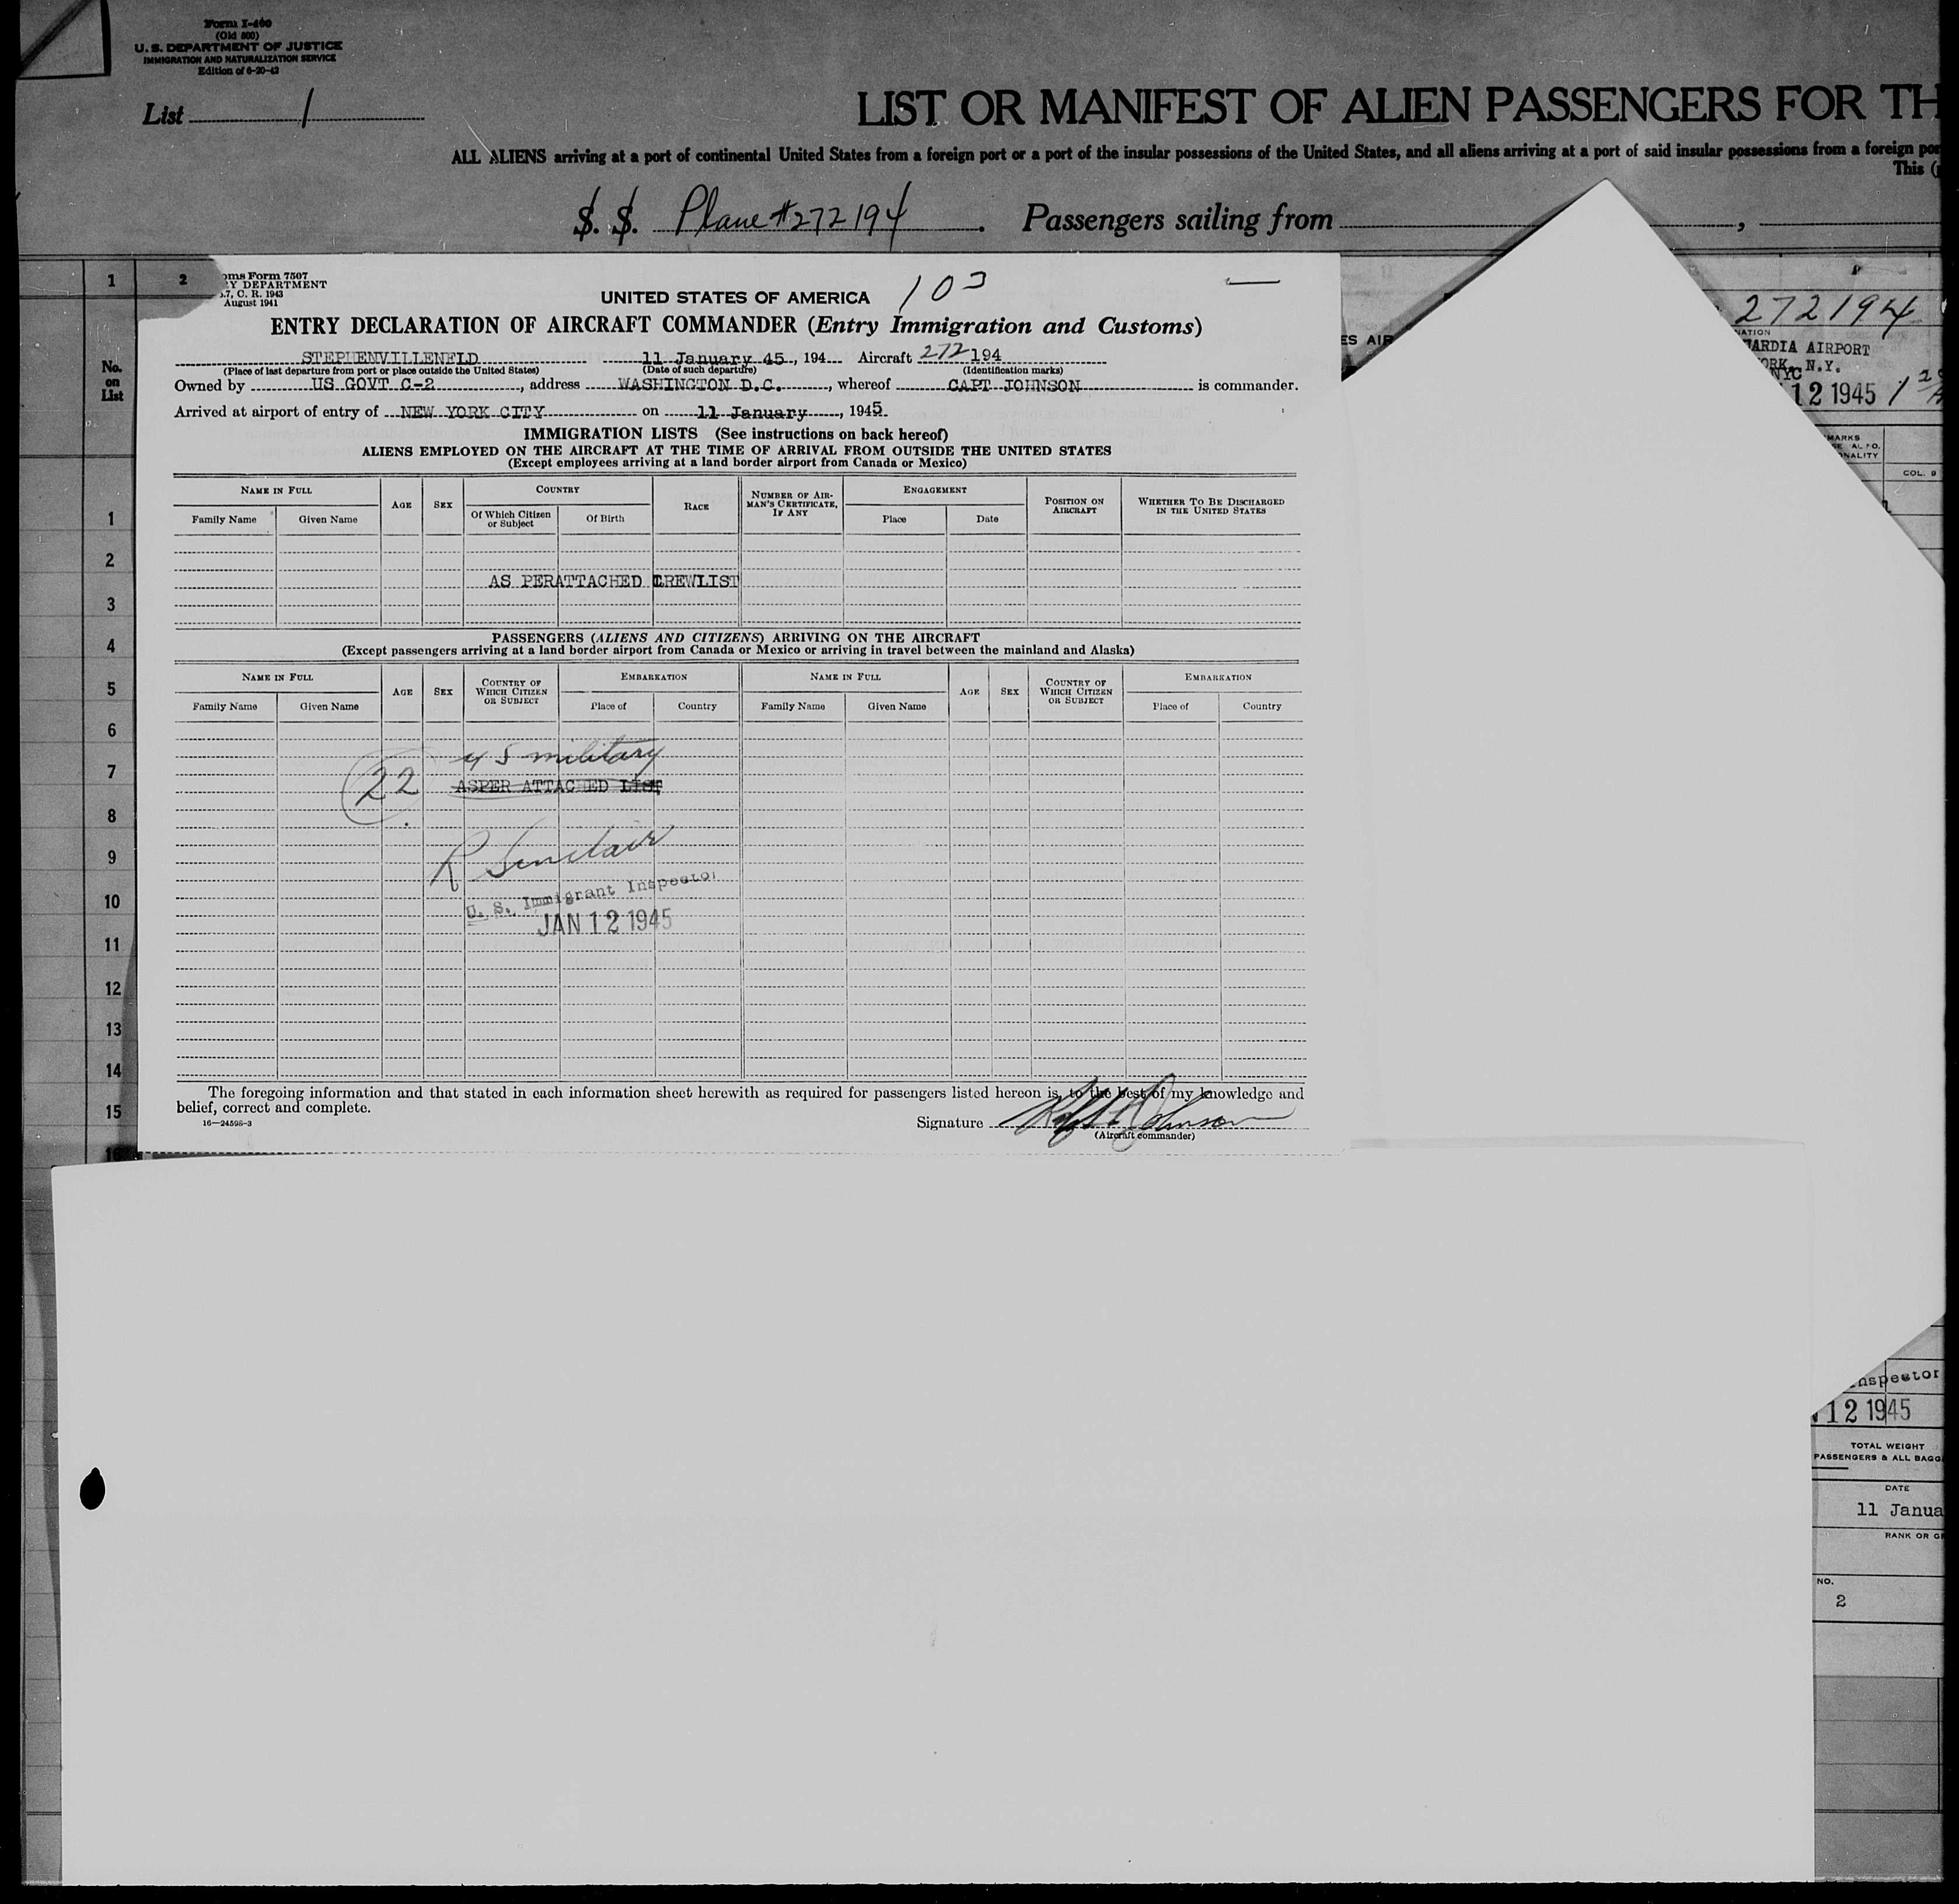 Form I-460
(Old 500)
U. S. DEPARTMENT OF JUSTICE
IMMIGRATION AND NATURALIZATION SERVICE
Edition of 6-20-42
List 1
LIST OR MANIFEST OF ALIEN PASSENGERS FOR TH
ALL ALIENS arriving at a port of continental United States from a foreign port or a port of the insular possessions of the United States, and all aliens arriving at a port of said insular possessions from a foreign por
This (
S. S. Plane #272194. Passengers sailing from ,
1 2
No. on List
oms Form 7507
Y DEPARTMENT
.7, C. R. 1943
August 1941
UNITED STATES OF AMERICA 103
ENTRY DECLARATION OF AIRCRAFT COMMANDER (Entry Immigration and Customs)
STEPHENVILLENFLD 11 January 45, 194 Aircraft 272194
(Place of last departure from port or place outside the United States) (Date of such departure) (Identification marks)
Owned by US GOVT C-2, address WASHINGTON D.C., whereof CAPT JOHNSON is commander.
Arrived at airport of entry of NEW YORK CITY on 11 January, 1945.
IMMIGRATION LISTS (See instructions on back hereof)
ALIENS EMPLOYED ON THE AIRCRAFT AT THE TIME OF ARRIVAL FROM OUTSIDE THE UNITED STATES
(Except employees arriving at a land border airport from Canada or Mexico)
NAME IN FULL AGE SEX COUNTRY RACE NUMBER OF AIRMAN'S CERTIFICATE, IF ANY ENGAGEMENT POSITION ON AIRCRAFT WHETHER TO BE DISCHARGED IN THE UNITED STATES
Family Name Given Name Of Which Citizen or Subject Of Birth Place Date
AS PERATTACHED CREWLIST
PASSENGERS (ALIENS AND CITIZENS) ARRIVING ON THE AIRCRAFT
(Except passengers arriving at a land border airport from Canada or Mexico or arriving in travel between the mainland and Alaska)
NAME IN FULL AGE SEX COUNTRY OF WHICH CITIZEN OR SUBJECT EMBARKATION NAME IN FULL AGE SEX COUNTRY OF WHICH CITIZEN OR SUBJECT EMBARKATION
Family Name Given Name Place of Country Family Name Given Name Place of Country
22 US military
ASPER ATTACHED LIST
R Sinclair
U. S. Immigrant Inspector
JAN 12 1945
The foregoing information and that stated in each information sheet herewith as required for passengers listed hereon is, to the best of my knowledge and
belief, correct and complete.
16—24598-3
Signature Johnson
(Aircraft commander)
1
2
3
4
5
6
7
8
9
10
11
12
13
14
15
16
ES AIR
272194
NATION
ARDIA AIRPORT
ORK, N.Y.
NYC
12 1945
MARKS
NALITY
COL. 9
nspector
12 1945
TOTAL WEIGHT
PASSENGERS & ALL BAGG
DATE
11 Janua
RANK OR G
NO.
2